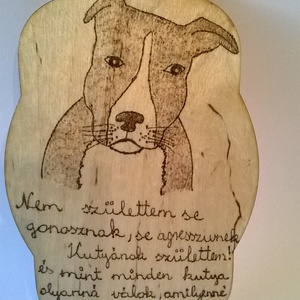 Nem születtem se
gonosznak, se agresszívnek
Kutyának születtem!
és mint minden kutya
olyanná válok, amilyenné